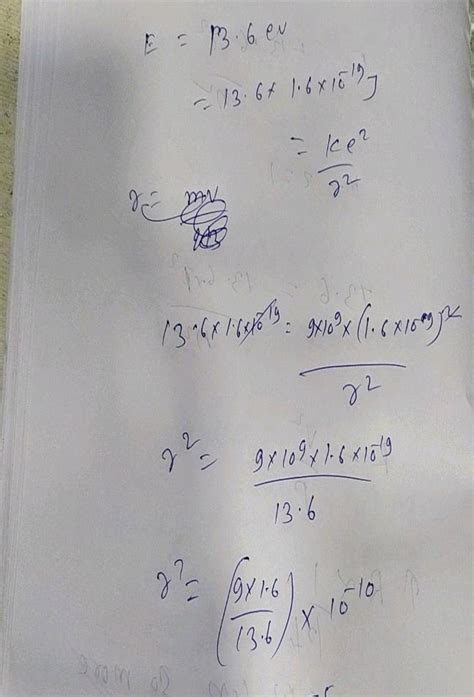 E = 13.6 ev
= 13.6 x 1.6x10^-19 J
= ke^2 / r^2
r =
13.6x1.6x10^-19 = 9x10^9 x (1.6x10^-19)^2 / r^2
r^2 = 9x10^9x1.6x10^-19 / 13.6
r^2 = (9x1.6 / 13.6) x 10^-10